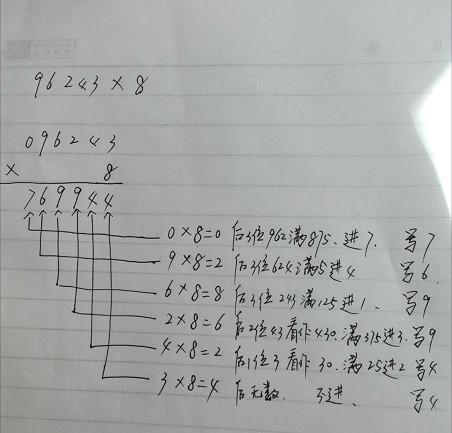 96243×8
096243
× 8
769944
0×8=0 后3位962满875.进7. 写7
9×8=2 后3位624满5进4 写6.
6×8=8 后3位243满125进1. 写9
2×8=6 后2位43看作430.满375进3.写9
4×8=2 后1位3看作30.满25进2写4
3×8=4 后无数. 不进. 写4